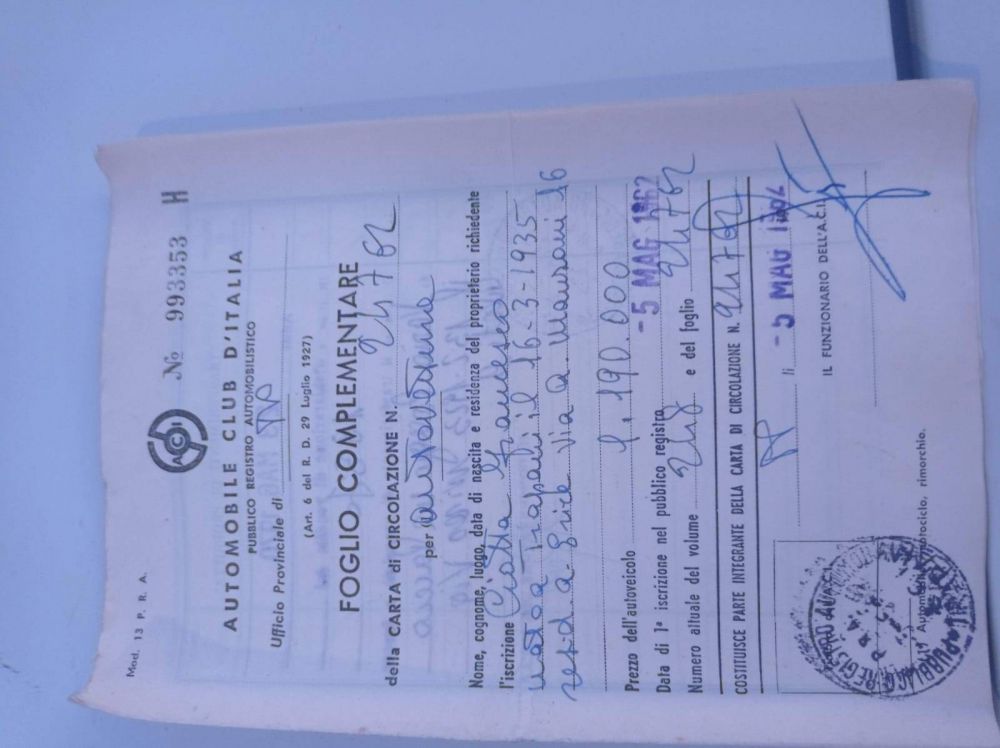 Mod. 13 P. R. A.
ACI
No 993353 H
AUTOMOBILE CLUB D'ITALIA
PUBBLICO REGISTRO AUTOMOBILISTICO
Ufficio Provinciale di TP
(Art. 6 del R. D. 29 Luglio 1927)
FOGLIO COMPLEMENTARE
della CARTA DI CIRCOLAZIONE N. 24762
per autovettura
Nome, cognome, luogo, data di nascita e residenza del proprietario richiedente
l'iscrizione Francesco
Trapani il 16-3-1935
resid a Erice Via 16
Prezzo dell'autoveicolo 1.190.000
Data di 1ª iscrizione nel pubblico registro -5 MAG 1962
Numero attuale del volume e del foglio 24762
COSTITUISCE PARTE INTEGRANTE DELLA CARTA DI CIRCOLAZIONE N. 24762
TP li -5 MAG 1962
IL FUNZIONARIO DELL'A.C.I.
motociclo, rimorchio.